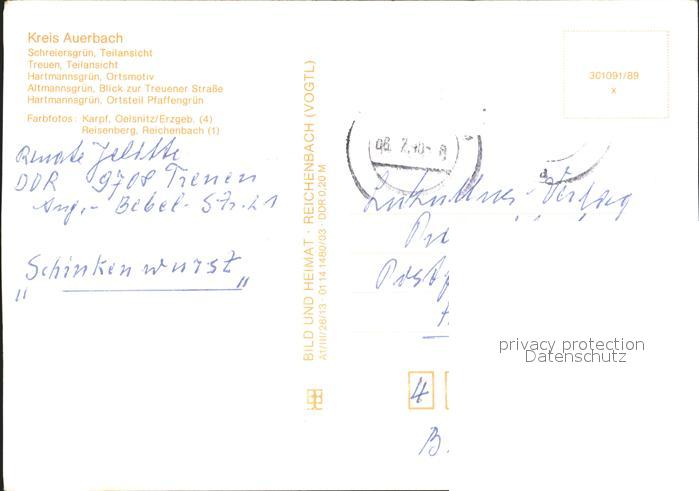 Kreis Auerbach
Schreiersgrün, Teilansicht
Treuen, Teilansicht
Hartmannsgrün, Ortsmotiv
Altmannsgrün, Blick zur Treuener Straße
Hartmannsgrün, Ortsteil Pfaffengrün
Farbfotos: Karpf, Oelsnitz/Erzgeb. (4)
Reisenberg, Reichenbach (1)
Renate
DDR 9708 Treuen
Aug.- Bebel- Str. 21
"Schinkenwurst"
BILD UND HEIMAT · REICHENBACH (VOGTL)
A1/III/26/13 · 01 14 1480/03 · DDR 0,20 M
301091/89
x
Verlag
4
B
privacy protection
Datenschutz